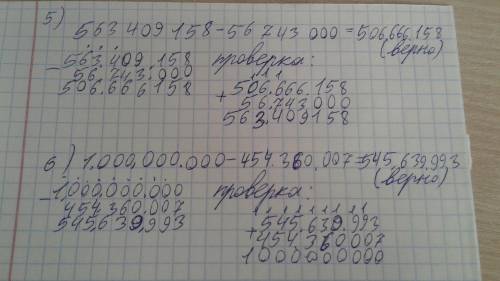 5) 563 409 158 - 56 743 000 = 506,666.158
(верно)
- 563.409.158 проверка:
56.743.000
506.666158
+ 506.666.158
56.743.000
563.409158
6) 1.000,000.000 - 454.360,007 = 545,639,993
(верно)
- 1000,000,000 проверка:
454.360,007
545,639,993
+ 545.639.993
454,360007
1000000000